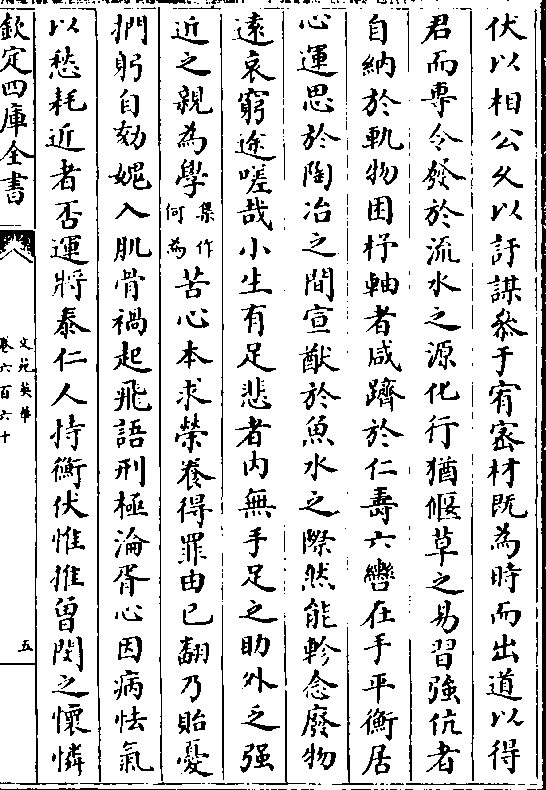 伏以相公久以訏謀參于宥密材既為時而出道以得
君而專令發於流水之源化行猶偃草之易習強伉者
自納於軌物困杼軸者咸躋於仁壽六轡在手平衡居
心運思於陶冶之間宣猷於魚水之際然能軫念廢物
遠哀窮途嗟哉小生有足悲者内無手足之助外乏强
近之親為學集作何為苦心本求榮養得罪由已翻乃貽憂
捫躬自劾媿入肌骨禍起飛語刑極淪胥心因病怯氣
以愁耗近者否運將泰仁人持衡伏惟推曾閔之懷憐
欽定四庫全書
文苑英華
卷六百六十
五